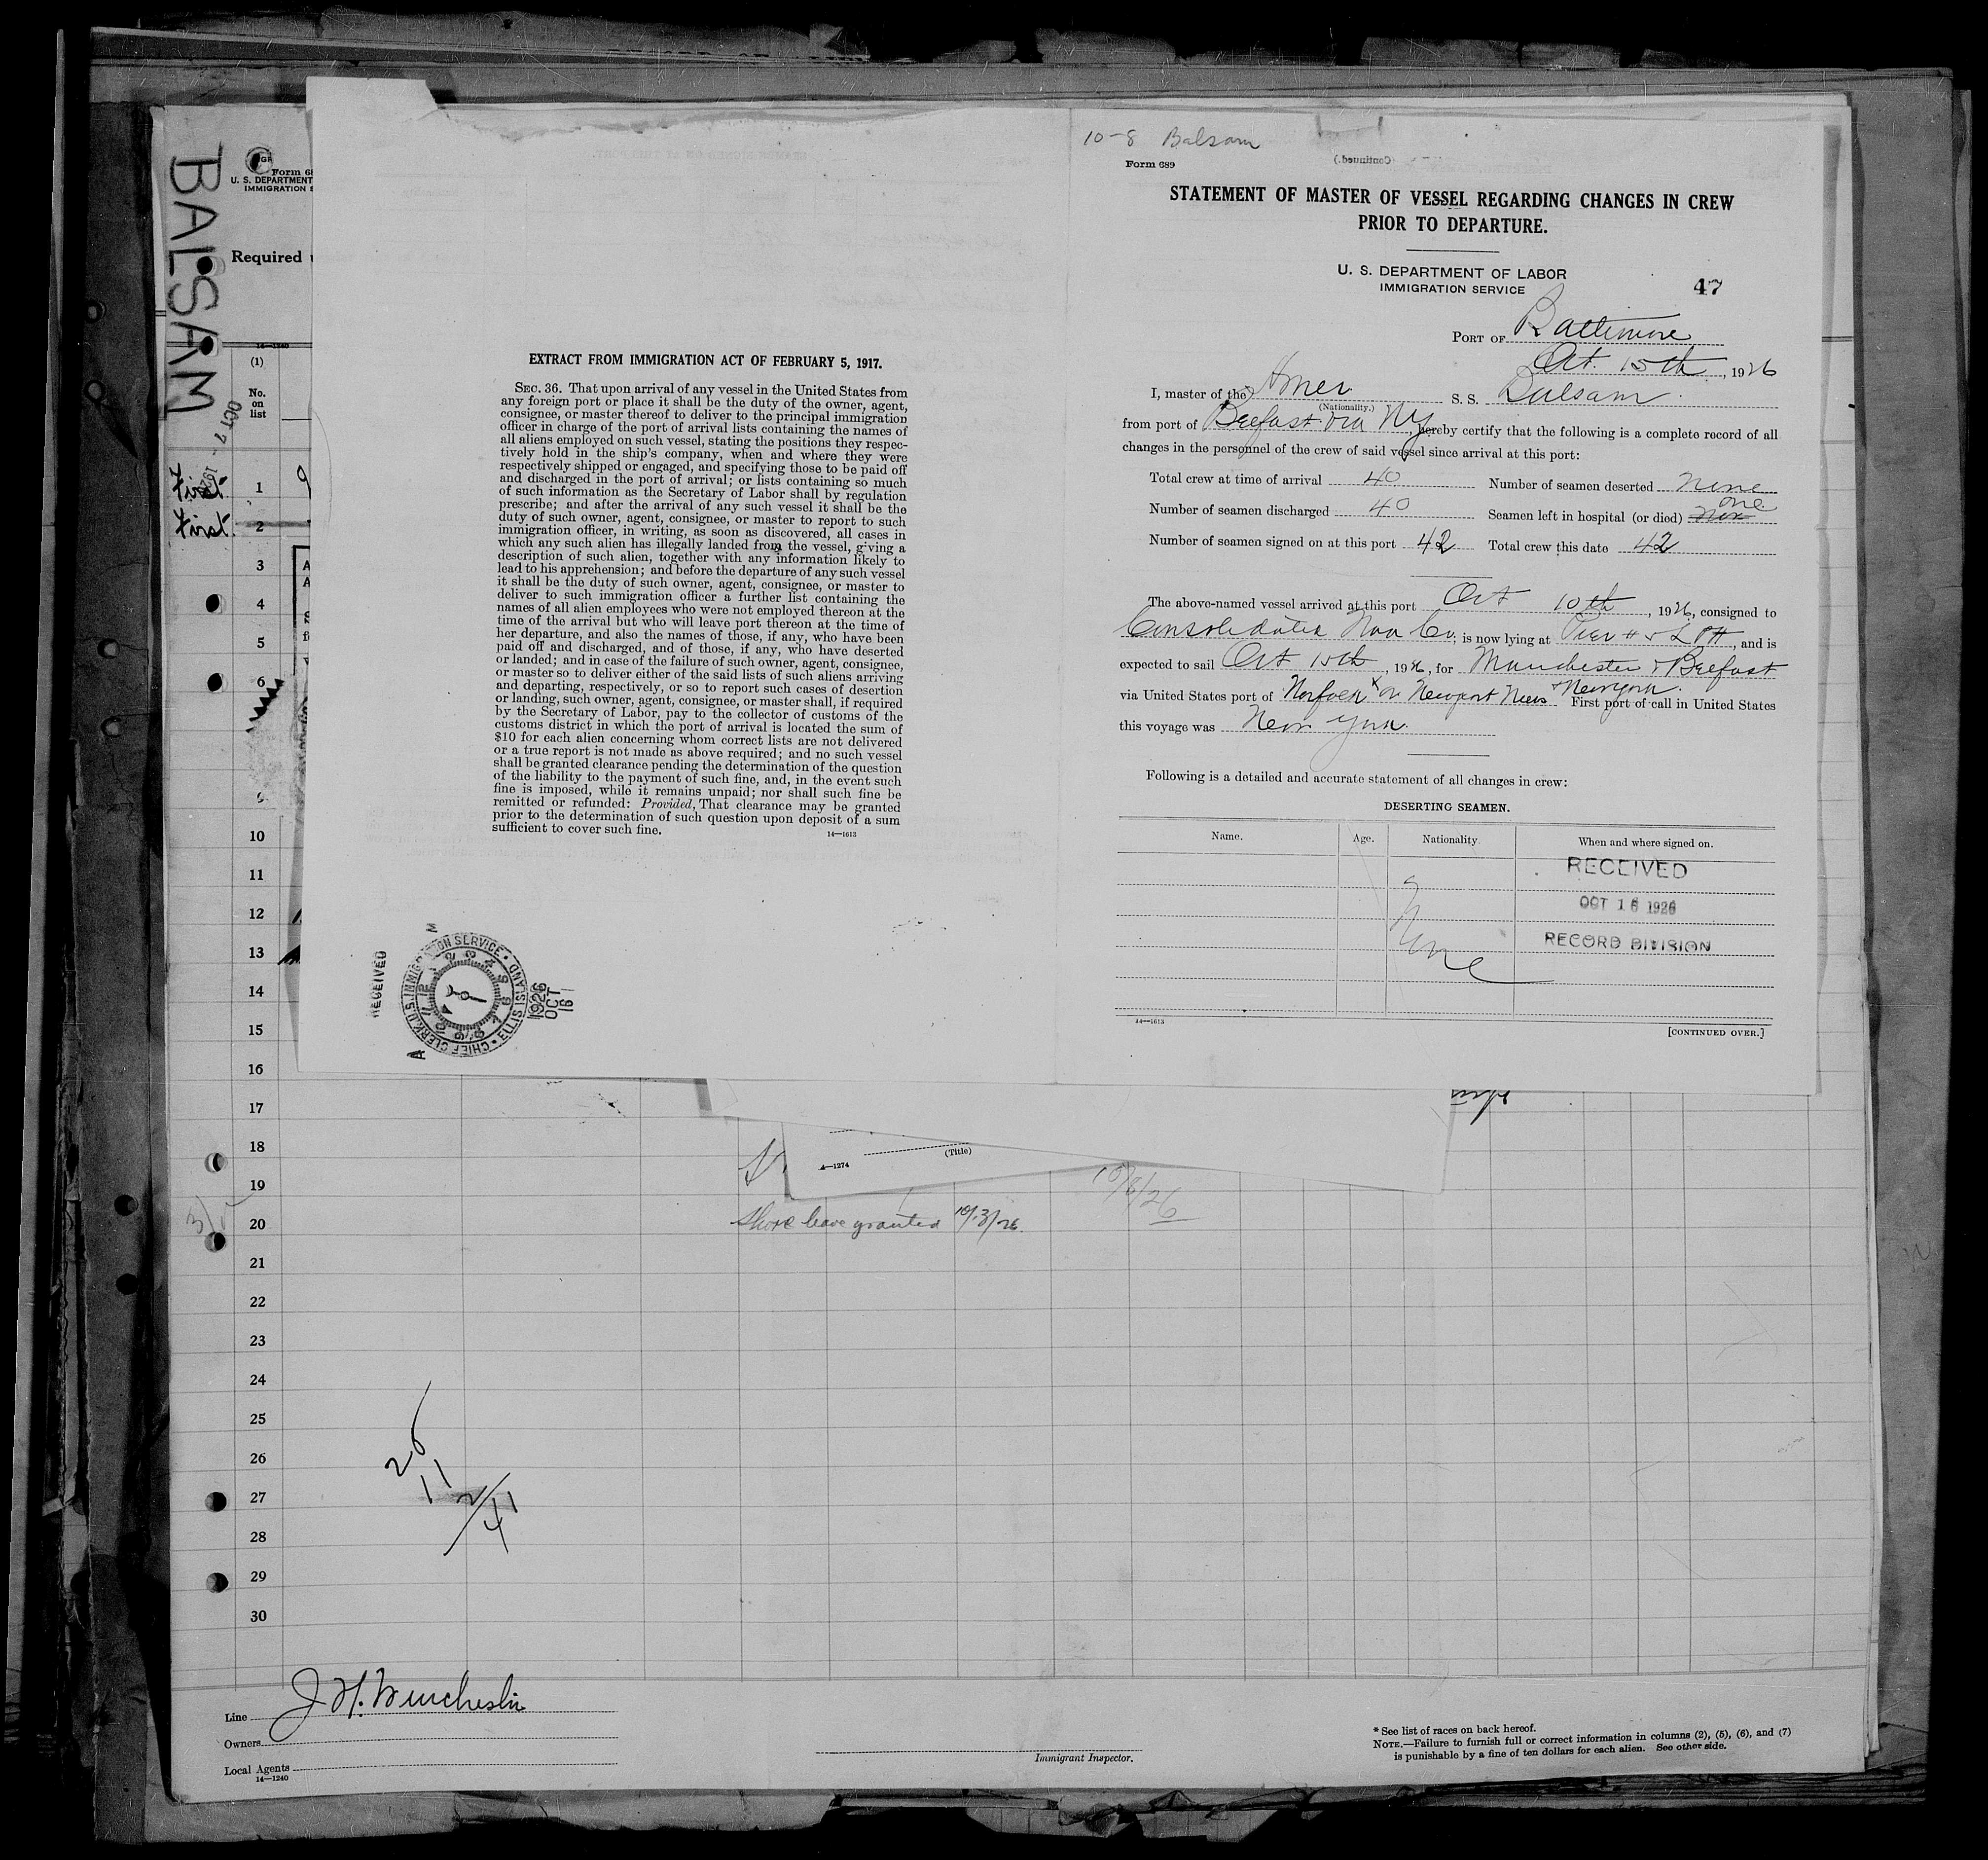 BALSAM
OCT 7 - 192
Form 68
U. S. DEPARTMENT
IMMIGRATION S
Required
14—1240
(1)
No.
on
list
First 1
First 2
3
4
5
6
9
10
11
12
13
14
15
16
17
18
19
20
21
22
23
24
25
26
27
28
29
30
EXTRACT FROM IMMIGRATION ACT OF FEBRUARY 5, 1917.
SEC. 36. That upon arrival of any vessel in the United States from
any foreign port or place it shall be the duty of the owner, agent,
consignee, or master thereof to deliver to the principal immigration
officer in charge of the port of arrival lists containing the names of
all aliens employed on such vessel, stating the positions they respec-
tively hold in the ship's company, when and where they were
respectively shipped or engaged, and specifying those to be paid off
and discharged in the port of arrival; or lists containing so much
of such information as the Secretary of Labor shall by regulation
prescribe; and after the arrival of any such vessel it shall be the
duty of such owner, agent, consignee, or master to report to such
immigration officer, in writing, as soon as discovered, all cases in
which any such alien has illegally landed from the vessel, giving a
description of such alien, together with any information likely to
lead to his apprehension; and before the departure of any such vessel
it shall be the duty of such owner, agent, consignee, or master to
deliver to such immigration officer a further list containing the
names of all alien employees who were not employed thereon at the
time of the arrival but who will leave port thereon at the time of
her departure, and also the names of those, if any, who have been
paid off and discharged, and of those, if any, who have deserted
or landed; and in case of the failure of such owner, agent, consignee,
or master so to deliver either of the said lists of such aliens arriving
and departing, respectively, or so to report such cases of desertion
or landing, such owner, agent, consignee, or master shall, if required
by the Secretary of Labor, pay to the collector of customs of the
customs district in which the port of arrival is located the sum of
$10 for each alien concerning whom correct lists are not delivered
or a true report is not made as above required; and no such vessel
shall be granted clearance pending the determination of the question
of the liability to the payment of such fine, and, in the event such
fine is imposed, while it remains unpaid; nor shall such fine be
remitted or refunded: Provided, That clearance may be granted
prior to the determination of such question upon deposit of a sum
sufficient to cover such fine.
14—1613
RECEIVED
CHIEF CLERK, U.S. IMMIGRATION SERVICE • ELLIS ISLAND
1926
OCT
16
10-8 Balsam
Form 689
(Continued.)
STATEMENT OF MASTER OF VESSEL REGARDING CHANGES IN CREW
PRIOR TO DEPARTURE.
U. S. DEPARTMENT OF LABOR
IMMIGRATION SERVICE
47
PORT OF Baltimore
Oct. 15th, 1926
I, master of the Amer S. S. Balsam
(Nationality.)
from port of Belfast via NY, hereby certify that the following is a complete record of all
changes in the personnel of the crew of said vessel since arrival at this port:
Total crew at time of arrival 40 Number of seamen deserted none
Number of seamen discharged 40 Seamen left in hospital (or died) one
Number of seamen signed on at this port 42 Total crew this date 42
The above-named vessel arrived at this port Oct 10th, 1926, consigned to
Consolidated Nav Co, is now lying at Pier # 5, and is
expected to sail Oct 15th, 1926, for Manchester & Belfast
via United States port of Norfolk or Newport News & New York. First port of call in United States
this voyage was New York.
Following is a detailed and accurate statement of all changes in crew:
DESERTING SEAMEN.
Name. Age. Nationality When and where signed on.
None
RECEIVED
OCT 16 1926
RECORD DIVISION
14—1613
[CONTINUED OVER.]
4—1274
(Title)
10/8/26
Shore leave granted 10/13/26.
26
11
2/41
Line J H. Winchester
Owners
Local Agents
14—1240
Immigrant Inspector.
* See list of races on back hereof.
NOTE.—Failure to furnish full or correct information in columns (2), (5), (6), and (7)
is punishable by a fine of ten dollars for each alien. See other side.